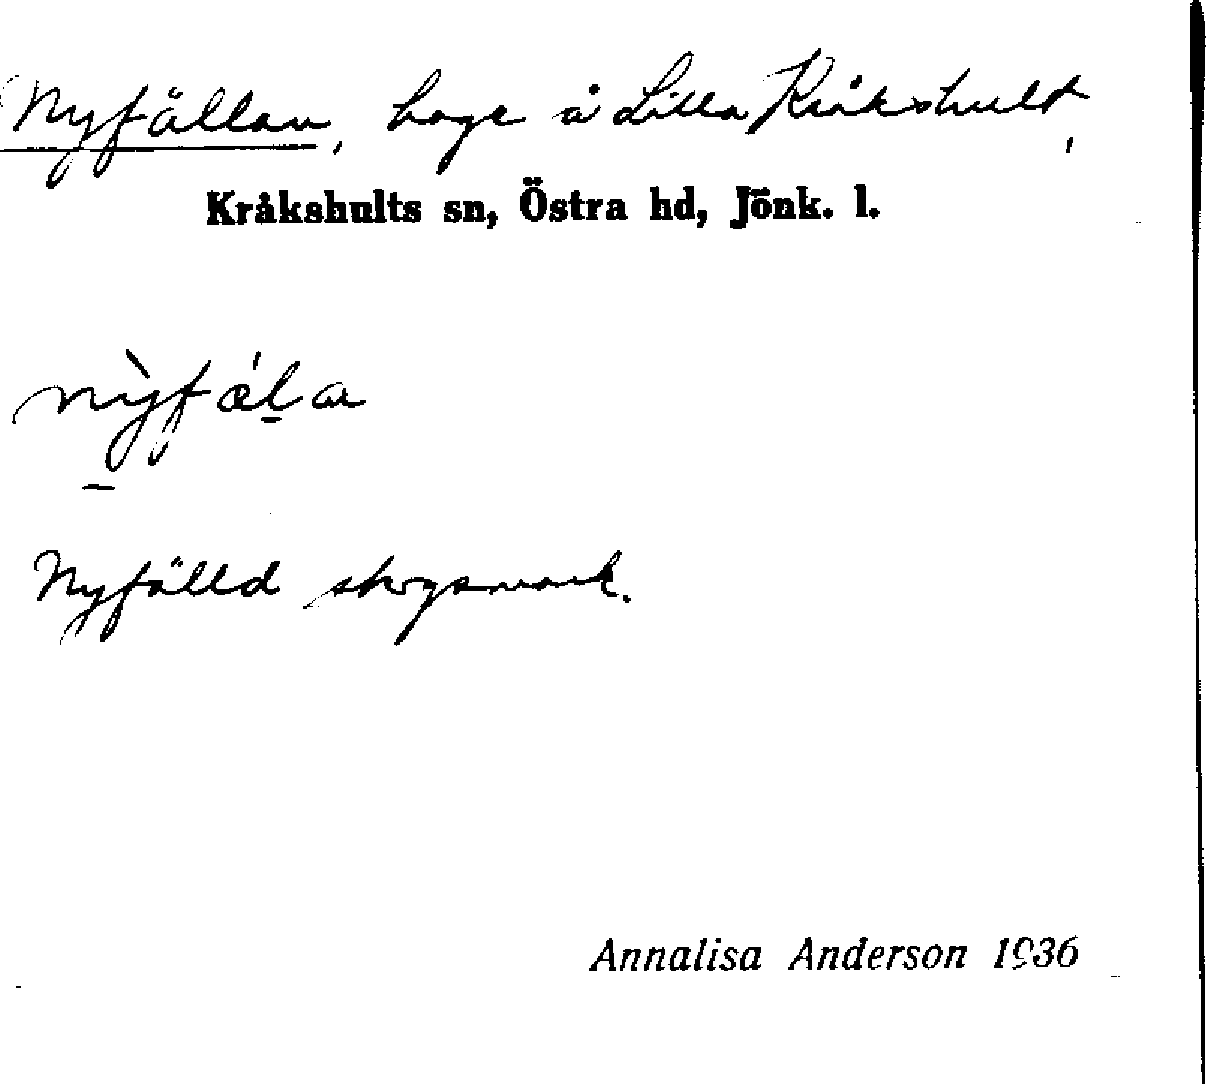 Nyfällan, hage å Lilla Kråkshult,
Kråkshults sn, Östra hd, Jönk. l.
nỳfæ̀l̠a
Nyfälld skogsmark.
Annalisa Anderson 1936